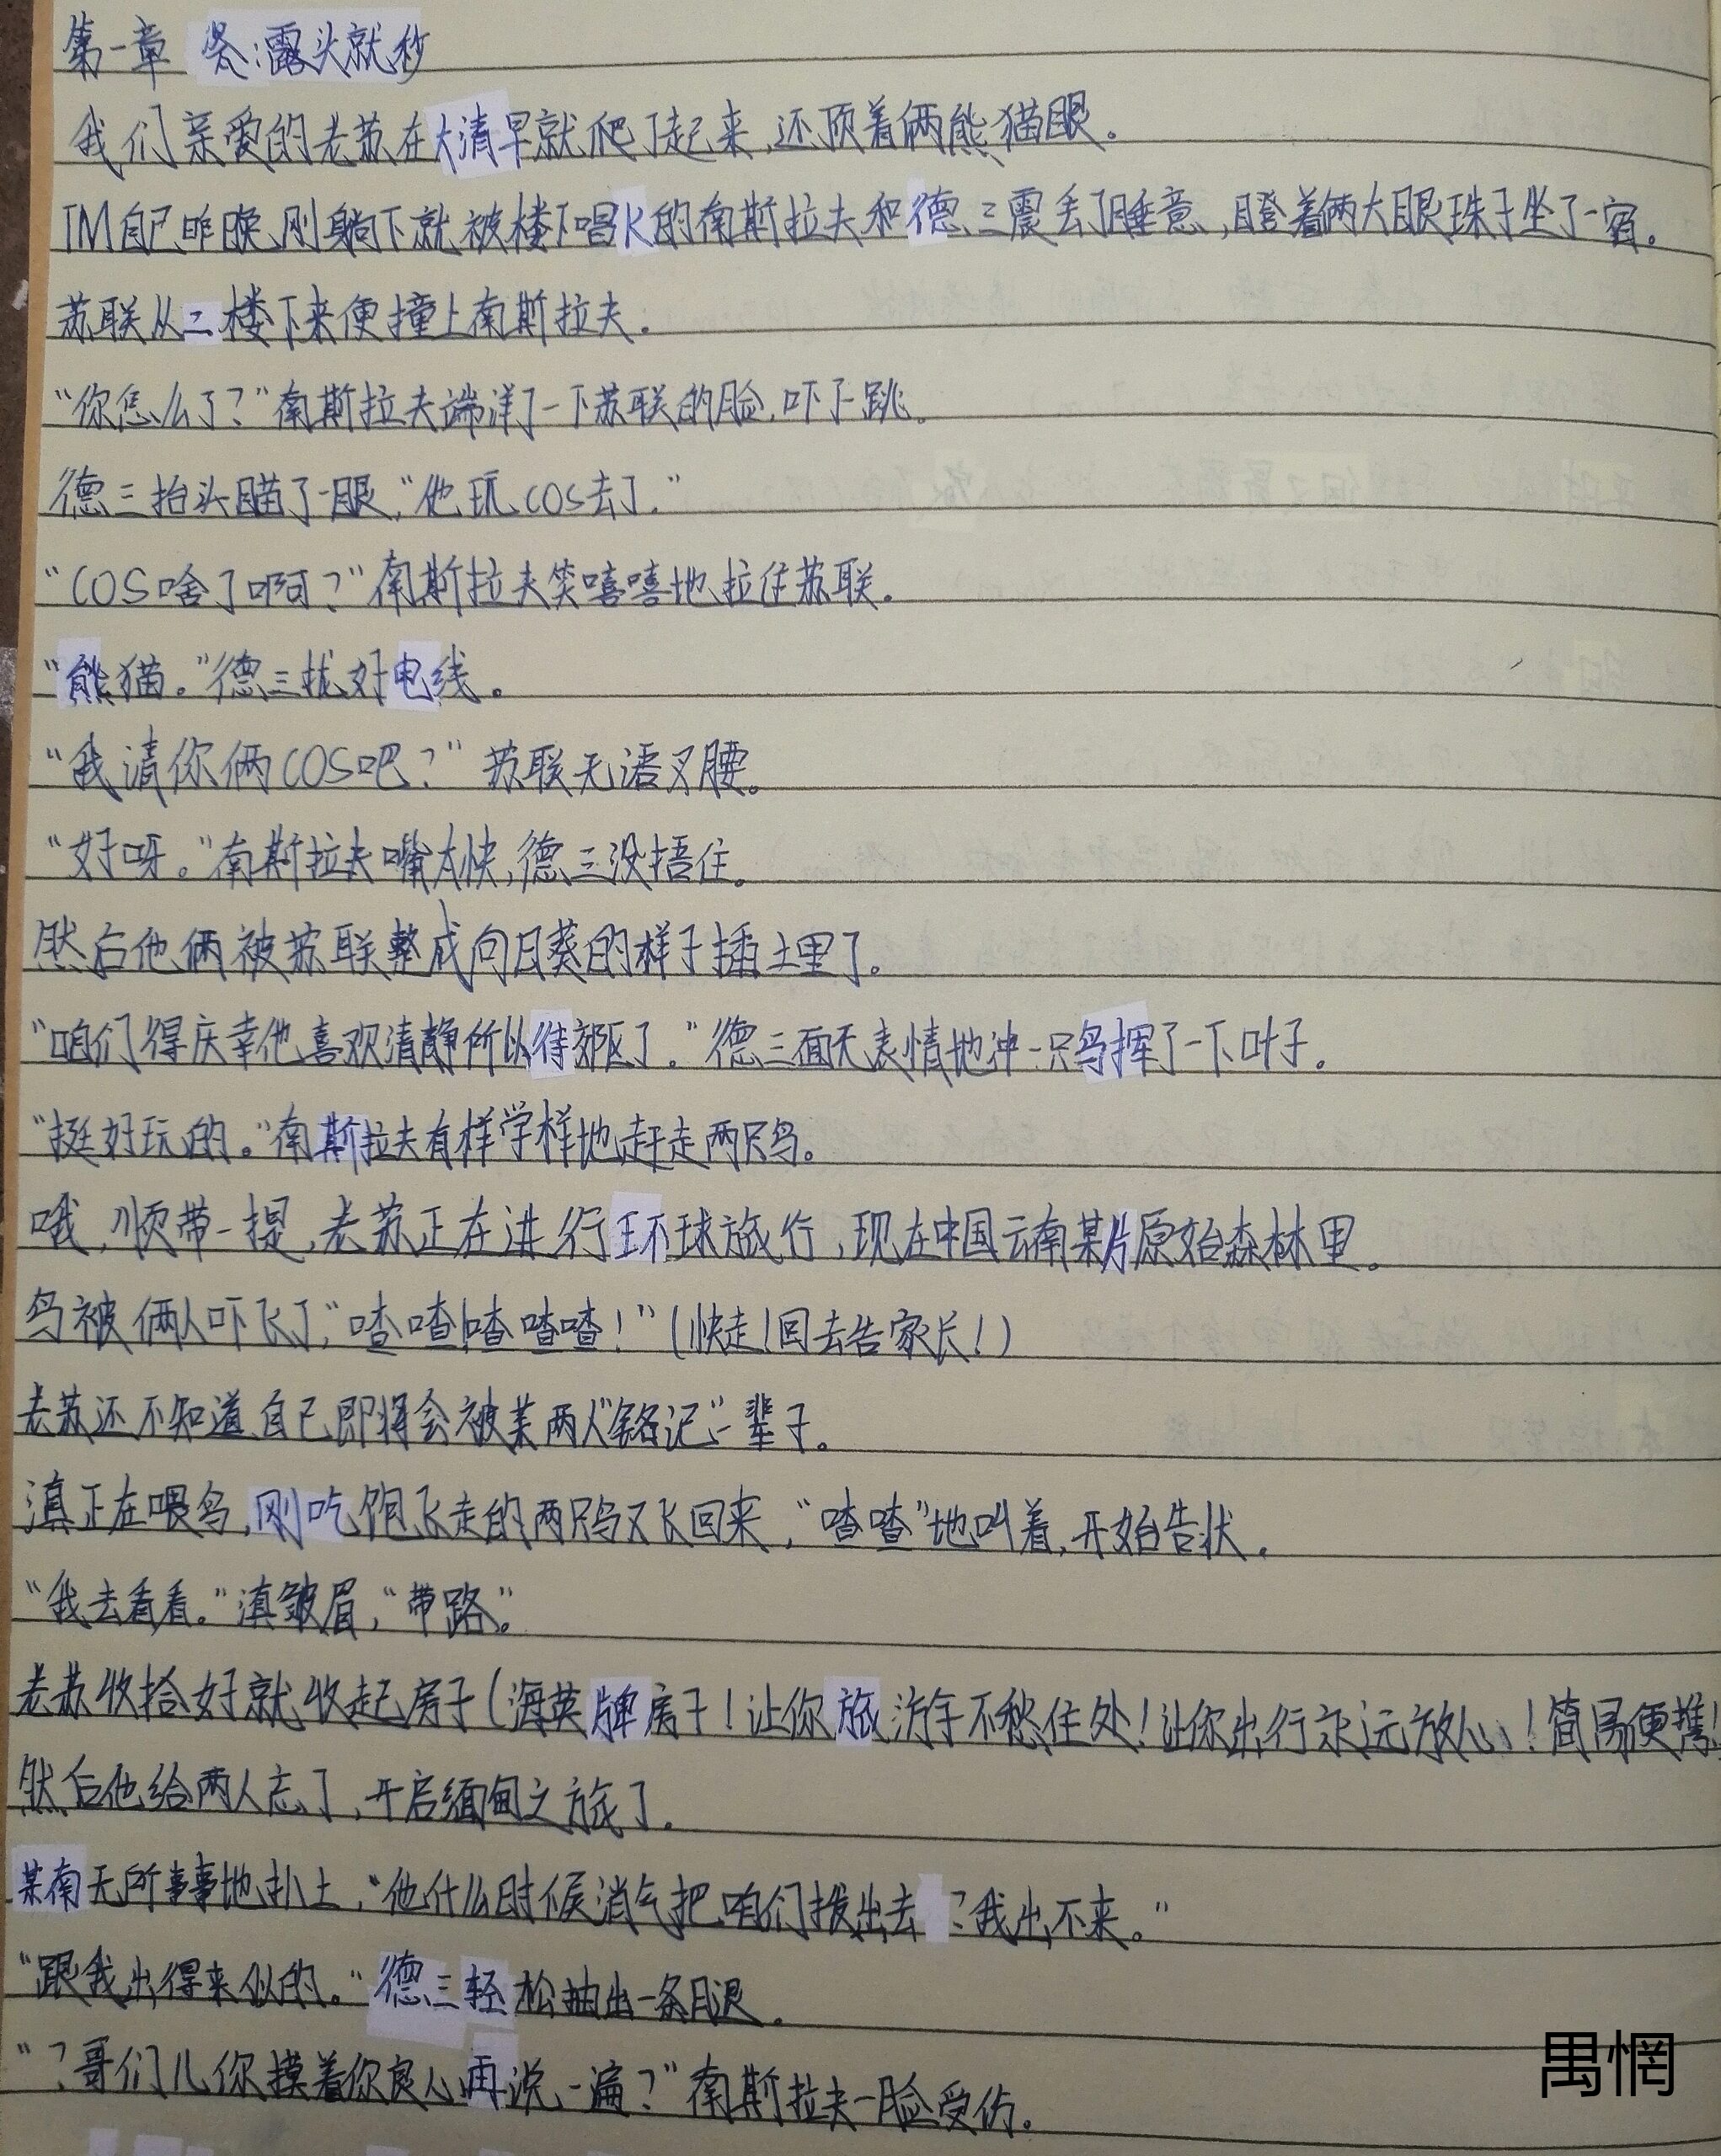 第一章 冬:露头就秒
我们亲爱的老苏在大清早就爬了起来,还顶着俩熊猫眼。
TM自己昨晚刚躺下就被楼下唱K的南斯拉夫和德三震丢了睡意,瞪着俩大眼珠子坐了一宿。
苏联从二楼下来便撞上南斯拉夫。
“你怎么了?”南斯拉夫端详了一下苏联的脸,吓了一跳。
德三抬头瞄了一眼,“他玩COS去了。”
“COS啥了啊?”南斯拉夫笑嘻嘻地拉住苏联。
“熊猫。”德三拔好电线。
“我请你俩COS吧?”苏联无语叉腰。
“好呀。”南斯拉夫嘴太快,德三没捂住。
然后他俩被苏联整成向日葵的样子插土里了。
“咱们得庆幸他喜欢清静所以待郊区了。”德三面无表情地冲一只鸟挥了一下叶子。
“挺好玩的。”南斯拉夫有样学样地赶走两只鸟。
哦,顺带一提,老苏正在进行环球旅行,现在中国云南某片原始森林里。
鸟被俩人吓飞了,“喳喳!喳喳喳!”(快走!回去告家长!)
老苏还不知道自己即将会被某两人“铭记”一辈子。
滇正在喂鸟,刚吃饱飞走的两只鸟又飞回来,“喳喳”地叫着,开始告状。
“我去看看。”滇皱眉,“带路。”
老苏收拾好就收起房子(海英牌房子!让你旅游再不愁住处!让你出行永远放心!简易便携!
然后他给两人忘了,开启缅甸之旅了。
某南无所事事地扒土,“他什么时候消气把咱们拔出去?我出不来。”
“跟我出得来似的。”德三轻松抽出一条腿。
“?哥们儿你摸着你良心再说一遍?”南斯拉夫一脸受伤。
禺惘